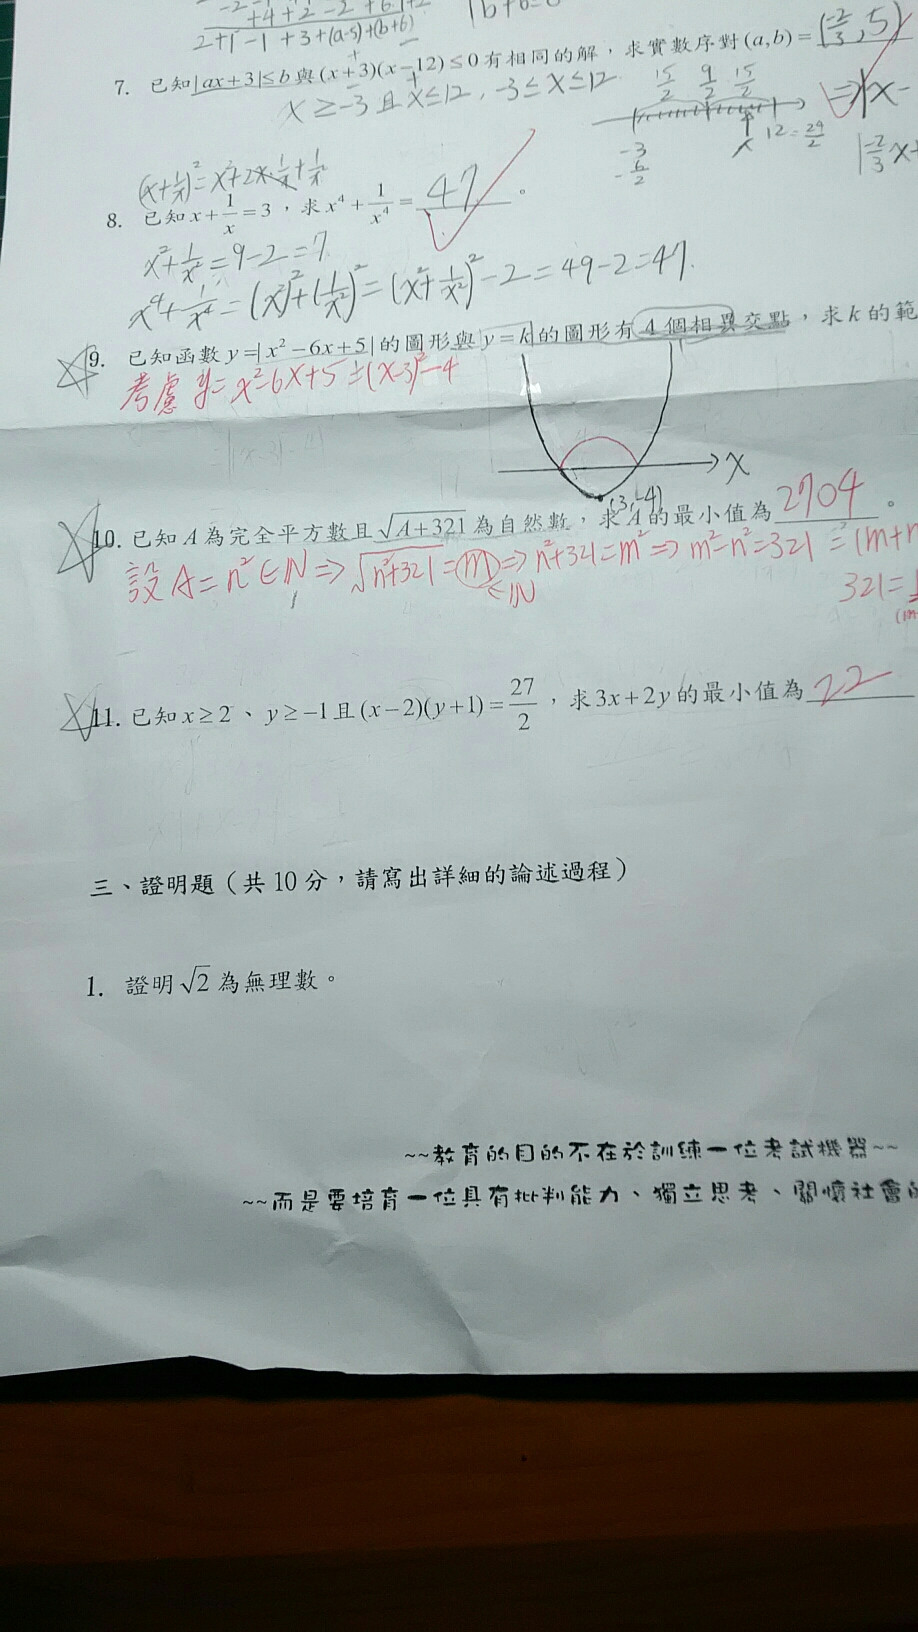 +4+2-2+6
2+1-1+3+(a-5)+(b+6)
7. 已知|ax+3|≤b與(x+3)(x-12)≤0有相同的解,求實數序對(a,b)=(-2/3, 5)
x≥-3且x≤12, -3≤x≤12
15/2 9/2 15/2
-3 x 12=24/2
-6/2
(x+1/x)²=x²+2x·1/x+1/x²
8. 已知x+1/x=3,求x⁴+1/x⁴=47。
x²+1/x²=9-2=7
x⁴+1/x⁴=(x²)²+(1/x²)²=(x²+1/x²)²-2=49-2=47.
9. 已知函數y=|x²-6x+5|的圖形與y=k的圖形有4個相異交點,求k的範
考慮y=x²-6x+5=(x-3)²-4
x
(3,-4)
10. 已知A為完全平方數且√(A+321)為自然數,求A的最小值為2704。
設A=n²∈N⇒√(n²+321)=m⇒n²+321=m²⇒m²-n²=321=(m+n
∈N
321=
11. 已知x≥2、y≥-1且(x-2)(y+1)=27/2,求3x+2y的最小值為22
三、證明題(共10分,請寫出詳細的論述過程)
1. 證明√2為無理數。
~~教育的目的不在於訓練一位考試機器~~
~~而是要培育一位具有批判能力、獨立思考、關懷社會的